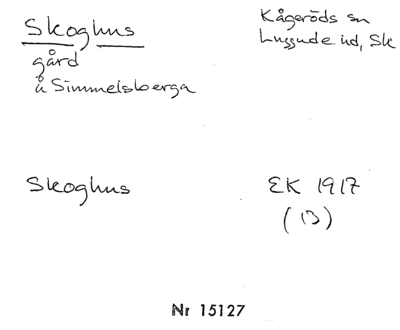 Skoghus
Kågeröds sn
Luggude hd, Sk
gård
å Simmelsberga
Skoghus
EK 1917
(13)
Nr 15127